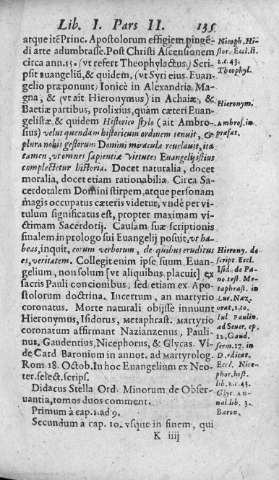 Lib. I. Pars II. 135
atque itẽ Princ. Apostolorum effigiem pingẽ-
di arte adumbrasse. Post Christi Ascensionem
circa ann. 15. (vt refert Theophylactus,) Scri-
psit euangeliũ, & quidem, (vt Syri eius Euan-
gelio præponunt) Ionicè in Alexandria Ma-
gna, & (vt ait Hieronymus) in Achaiæ, &
Bæotiæ partibus, prolixius, quàm cæteri Euan-
gelistæ, & quidem Historico stylo (ait Ambro-
sius) velut quendam historicum ordinem tenuit, &
plura nobis gestorum Domini miracula reuelauit, ita
tamen, vt omnes sapientiæ virtutes Euangelij istius
complectetur historia. Docet naturalia, docet
moralia, docet etiam rationabilia. Circa Sa-
cerdotalem Domini stirpem, atque personam
magis occupatus cæteris videtur, vnde per vi-
tulum significatus est, propter maximam vi-
ctimam Sacerdotij. Causam suæ scriptionis
simul in prologo sui Euangelij posuit, vt ha-
beas, inquit, eorum verborum, de quibus eruditus
es, veritatem. Collegit enim ipse suum Euan-
gelium, non solum [vt aliquibus placuit] ex
sacris Pauli concionibus, sed etiam ex Apo-
stolorum doctrina. Incertum, an martyrio
coronatus. Morte naturali obijsse innuunt
Hieronymus, Isidorus, Metaphrast. martyrio
coronatum affirmant Nazianzenus, Pauli-
nus, Gaudentius, Nicephorus, & Glycas. Vi-
de Card Baronium in annot. ad Martyrolog.
Rom. 18. Octob. In hoc Euangelium ex Neo-
ter. select. scrips.
Didacus Stella Ord. Minorum de Obser-
uantia, tomos duos comment.
Primum à cap. 1. ad 9.
Secundum à cap. 10. vsque in finem, qui
K iiij
Niceph. Hi-
stor. Eccl. li.
2. c. 43.
Theophyl.
Hieronym.
Ambros. in
præfat.
Hierony. de
script. Eccl.
Isid. de Pa.
no. test. Me-
taphrast. in
Luc. Naz.
orat.
ur. Paulin.
ad Seuer. ep.
12. Gaud.
serm. 17. in
Eccl. Nice-
phor. hist.
lib. 2. c. 43.
Glyc. An-
nal. lib. 3.
Baron.